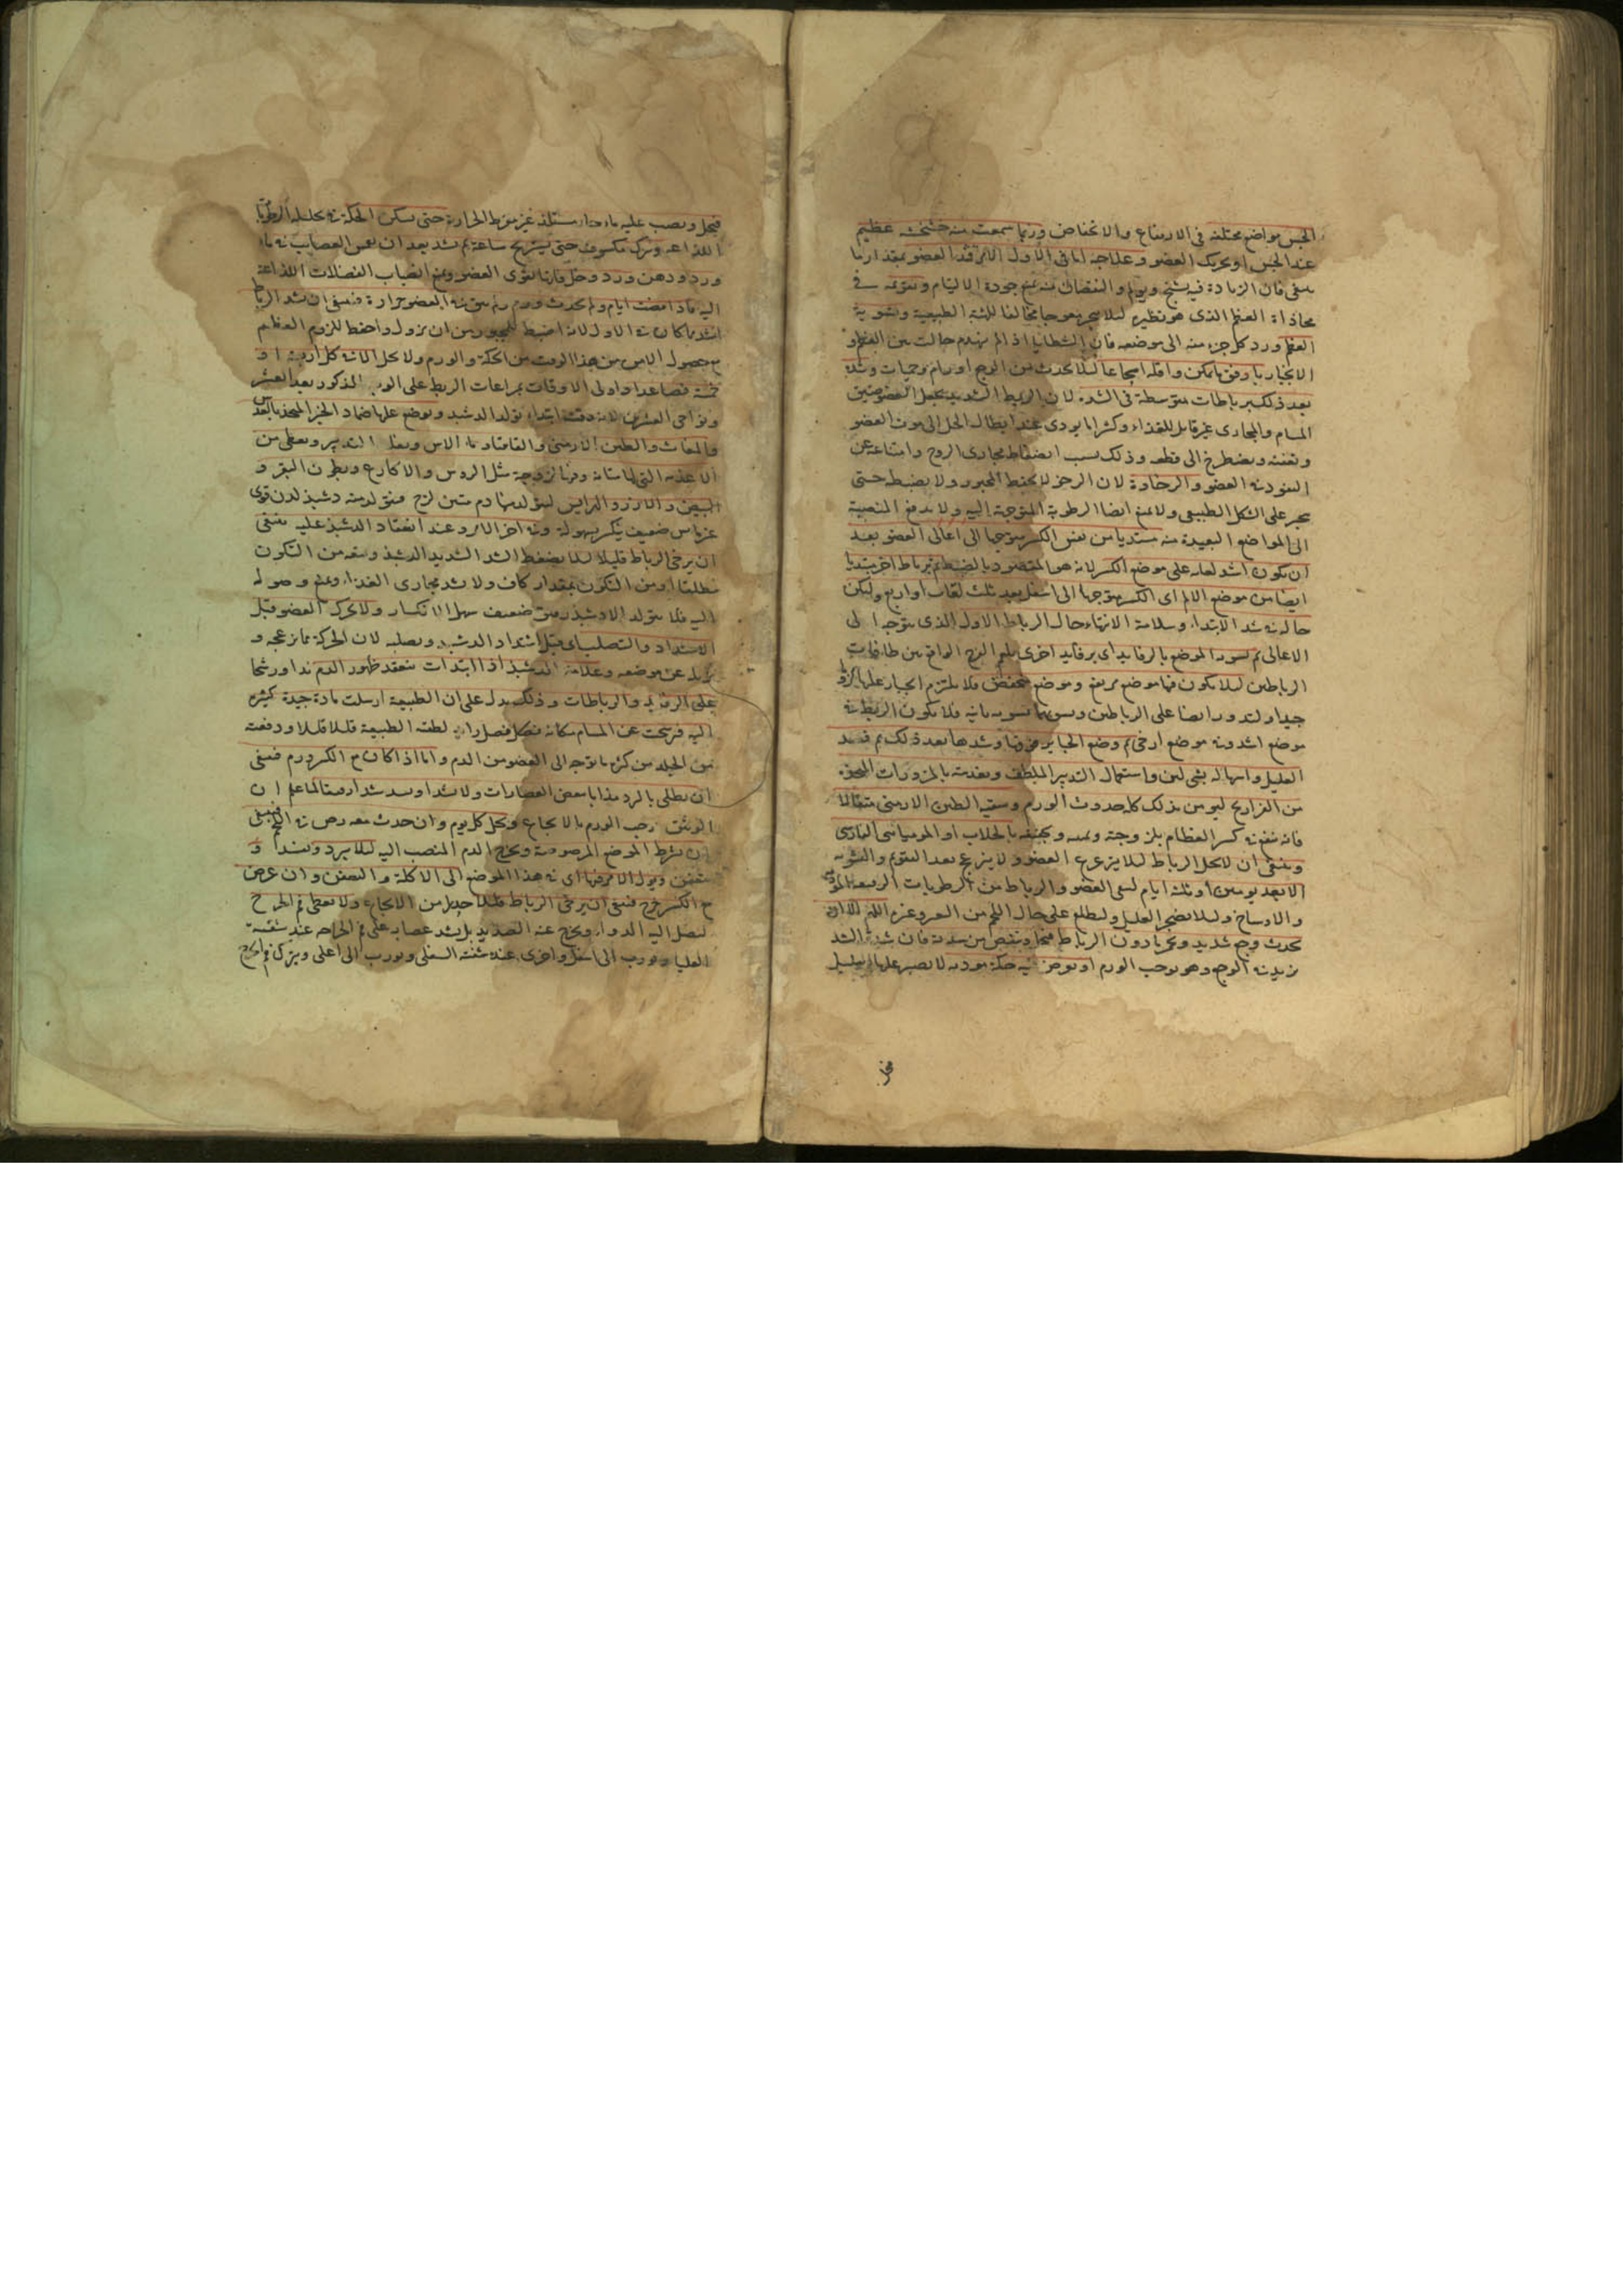 الجس مواضع مختلفة فى الارتفاع والانخفاض وربما سمعت منه خشخشة عظيم
عند الجس او تحريك العضو وعلاجه اما فى الاول العضو بمقدار ما
ينبغى فان الزيادة فيه يشنج ويولم والنقصان منه يمنع جودة الالتيام وتقويمه فى
محاذاة العظم الذى هو نظيره ليلا ينجبر معوجا مخالفا للهيئة الطبيعية وتسوية
العظم ورد كل جزء منه الى موضعه فان الشظايا اذا لم تهندم حالت بين العظم و
الانجبار بارفق ما يمكن واقله ايجاعا ليلا يحدث من الوجع اورام وحميات وشده
بعد ذلك برباطات متوسطة فى الشد لان الربط الشديد يجعل العضو ضيق
المسام والمجارى غير قابل للغذاء وكثيرا ما يودى عند ابطال الحل الى موت العضو
وتعفنه ويضطر الى قطعه وذلك بسبب انضغاط مجارى الروح وامتناعه عن
النفود فى العضو والرخاوة لان الرخو لا يحفظ المجبور ولا يضبطه حتى
يجبر على الشكل الطبيعى ولا يمنع ايضا الرطوبة المتوجهة اليه ولا يدفع المنصبة
الى المواضع البعيدة منه مبتديا من نفس الكسر متوجها الى اعالى العضو بعد
ان يكون اشد لفافه على موضع الكسر لانه هو المقصود بالضبط ثم برباط اخر مبتديا
ايضا من موضع الالم اى الكسر متوجها الى اسفل بعد ثلث لفات او اربع وليكن
حاله فى شد الابتداء وسلامة الانتهاء حال الرباط الاول الذى متوجه الى
الاعالى ثم تسوية الموضع بالرفايد اى برفايد اخرى الواقع بين طاقات
الرباطين ليلا يكون فيها موضع مرتفع وموضع منخفض فلا يلتزم الجباير عليها لزوما
جيدا ويدور ايضا على الرباطين وتسويتها تسوية ثانية فلا يكون الربط فى
موضع اشد وفى موضع ارخى ثم وضع الجباير فوقها وشدها بعد ذلك ثم فصد
العليل واسهاله بشى لين واستعمال التدبير الملطف وتغذيته بالمزورات المتخذة
من الفراريج ليومن بذلك كله حدوث الورم وسقيه الطين الارمنى مثقالا
فانه ينفع فى كسر العظام بلزوجته ويجففه بالجلاب او المومياى الفارسى
وينبغى ان لا يحل الرباط ليلا يزعزع العضو ولا ينزعج بعد التقويم والتسوية
الا بعد يومين او ثلثة ايام لينقى العضو والرباط من الرطوبات
والاوساخ وليلا يضجر العليل وليطلع على حال اللحم من التغير وغيره اللهم الا ان
يحدث وجع شديد ويخرجا دون الرباط فيحل وينقص من شدته فان شدة الشد
يزيد فى الوجع وهو يوجب الورم او يعرض فيه حكة مودية لا يصبر عليها العليل
فيحل
فيحل ويصب عليه ماء حار مستلذ غير مفرط الحرارة حتى يسكن الحكة بتحليله الرطوبات
اللذاعة ويترك مكشوفا حتى يستريح ساعة ثم يشد بعد ان يغمس العصايب فى ماء
ورد ودهن ورد وخل فانها تقوى العضو ويمنع انصباب الفضلات اللذاعة
اليه فاذا مضت ايام ولم يحدث ورم ولم يبق فى العضو حرارة فينبغى ان يشد الرباط
اشد مما كان فى الاول لانه اضبط للمجبور من ان يزول واحفظ للزوم العظم
مع حصول الامن من هذا الوقت من الحكة والورم ولا يحل الا فى كل اربعة او
خمسة فصاعدا واولى الاوقات بمراعات الربط على الوجه المذكور بعد العشر
ونواحى العشرين لانه وقت ابتداء تولد الدشبد ويوضع عليها ضماد الخبز المتخذ
والمغاث والطين الارمنى والقاقيا وماء الاس ويغلظ التدبير ويعطى من
الاغذية التى لها متانة ولزوجة مثل الروس والاكارع وبطون البقر و
البيض والارز والهرايس ليتولد منها دم متين لزج فيتولد منه دشبذ لدن قوى
غير يابس ضعيف ينكسر بسهولة وفى اخر الامر وعند انعقاد الدشبذ عليه ينبغى
ان يرخى الرباط قليلا ليلا يضغط الشد الشديد الدشبذ ويمنعه من التكون
مطلقا او من التكون بمقدار كاف ولا يشد مجارى الغذاء ويمنع وصوله
اليه فلا يتولد الا دشبذ رقيق ضعيف سهل الانكسار ولا يحرك العضو قبل
الاشتداد والتصلب اى قبل اشتداد الدشبذ وتصلبه لان الحركة مما يزعجه و
يزيله عن موضعه وعلامة الدشبذ اذا ابتدات تنعقد ظهور الدم ندا ورشحا
على الرفايد والرباطات وذلك يدل على ان الطبيعة ارسلت مادة جيدة كثيرة
اليه فرشحت عن المسام فكانه فضل لطفته الطبيعة قليلا قليلا ودفعته
من الجلد من كثرة ما توجه الى العضو من الدم واما اذا كان مع الكسر ورم فينبغى
ان يطلى بالمرد هذا ببعض العصارات ولا يشد شدا وثيقا لما علم ان
الوثيق يوجب الورم بالايجاع ويحل كل يوم وان حدث معه رض فى اللحم فينبغى
ان يشرط الموضع المرضوضة ويخرج الدم المنصب اليه ليلا يبرد ويفسد و
يتعفن ويول الامر فيها اى فى هذا الموضع الى الاكلة والتعفن وان عرض
مع الكسر جرح فينبغى ان يرخى الرباط قليلا حذرا من الايجاع ولا يغطى فم الجرح
ليصل اليه الدواء ويخرج عنه الصديد بل يشد عصابة على فم الجراحة عند شفته
العليا ويورب الى اسفل واخرى عند شفته السفلى ويورب الى اعلى ويترك فم الجرح